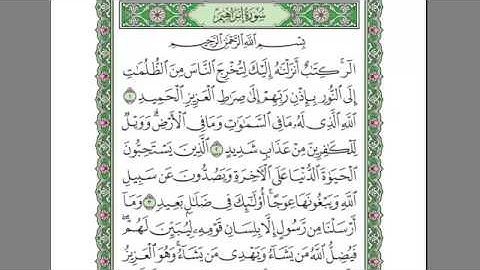 سُورَةُ إِبْرَاهِيمَ
بِسْمِ اللَّهِ الرَّحْمَٰنِ الرَّحِيمِ
الٓرۚ كِتَٰبٌ أَنزَلْنَٰهُ إِلَيْكَ لِتُخْرِجَ النَّاسَ مِنَ الظُّلُمَٰتِ
إِلَى النُّورِ بِإِذْنِ رَبِّهِمْ إِلَىٰ صِرَٰطِ الْعَزِيزِ الْحَمِيدِ ١
اللَّهِ الَّذِي لَهُۥ مَا فِي السَّمَٰوَٰتِ وَمَا فِي الْأَرْضِۗ وَوَيْلٌ
لِّلْكَٰفِرِينَ مِنْ عَذَابٍ شَدِيدٍ ٢ الَّذِينَ يَسْتَحِبُّونَ
الْحَيَوٰةَ الدُّنْيَا عَلَى الْءَاخِرَةِ وَيَصُدُّونَ عَن سَبِيلِ
اللَّهِ وَيَبْغُونَهَا عِوَجًاۚ أُو۟لَٰٓئِكَ فِي ضَلَٰلٍۭ بَعِيدٍ ٣ وَمَآ
أَرْسَلْنَا مِن رَّسُولٍ إِلَّا بِلِسَانِ قَوْمِهِۦ لِيُبَيِّنَ لَهُمْۖ
فَيُضِلُّ اللَّهُ مَن يَشَآءُ وَيَهْدِي مَن يَشَآءُۚ وَهُوَ الْعَزِيزُ